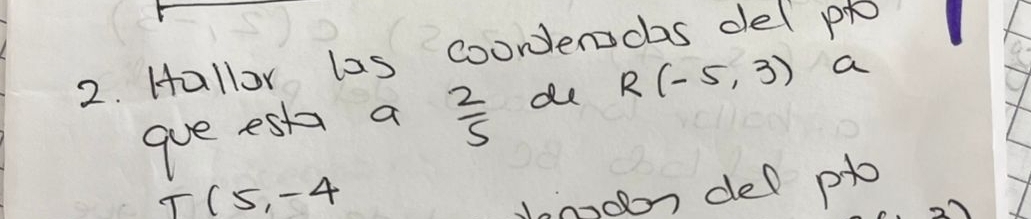 2. Hallar las coordenadas del pto
que esta a 2/5 de R(-5,3) a
T(5,-4
del pto